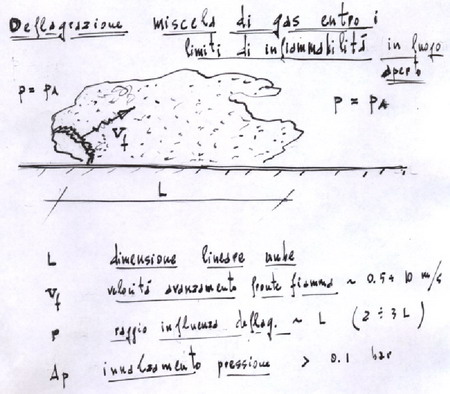 Deflagrazione miscela di gas entro i
limiti di infiammabilità in luogo
aperto
p = pA
p = pA
Vf
L
L dimensione lineare nube
Vf velocità avanzamento fronte fiamma ~ 0.5 ÷ 10 m/s
r raggio influenza deflag. ~ L (2 ÷ 3 L)
Δp innalzamento pressione > 0.1 bar